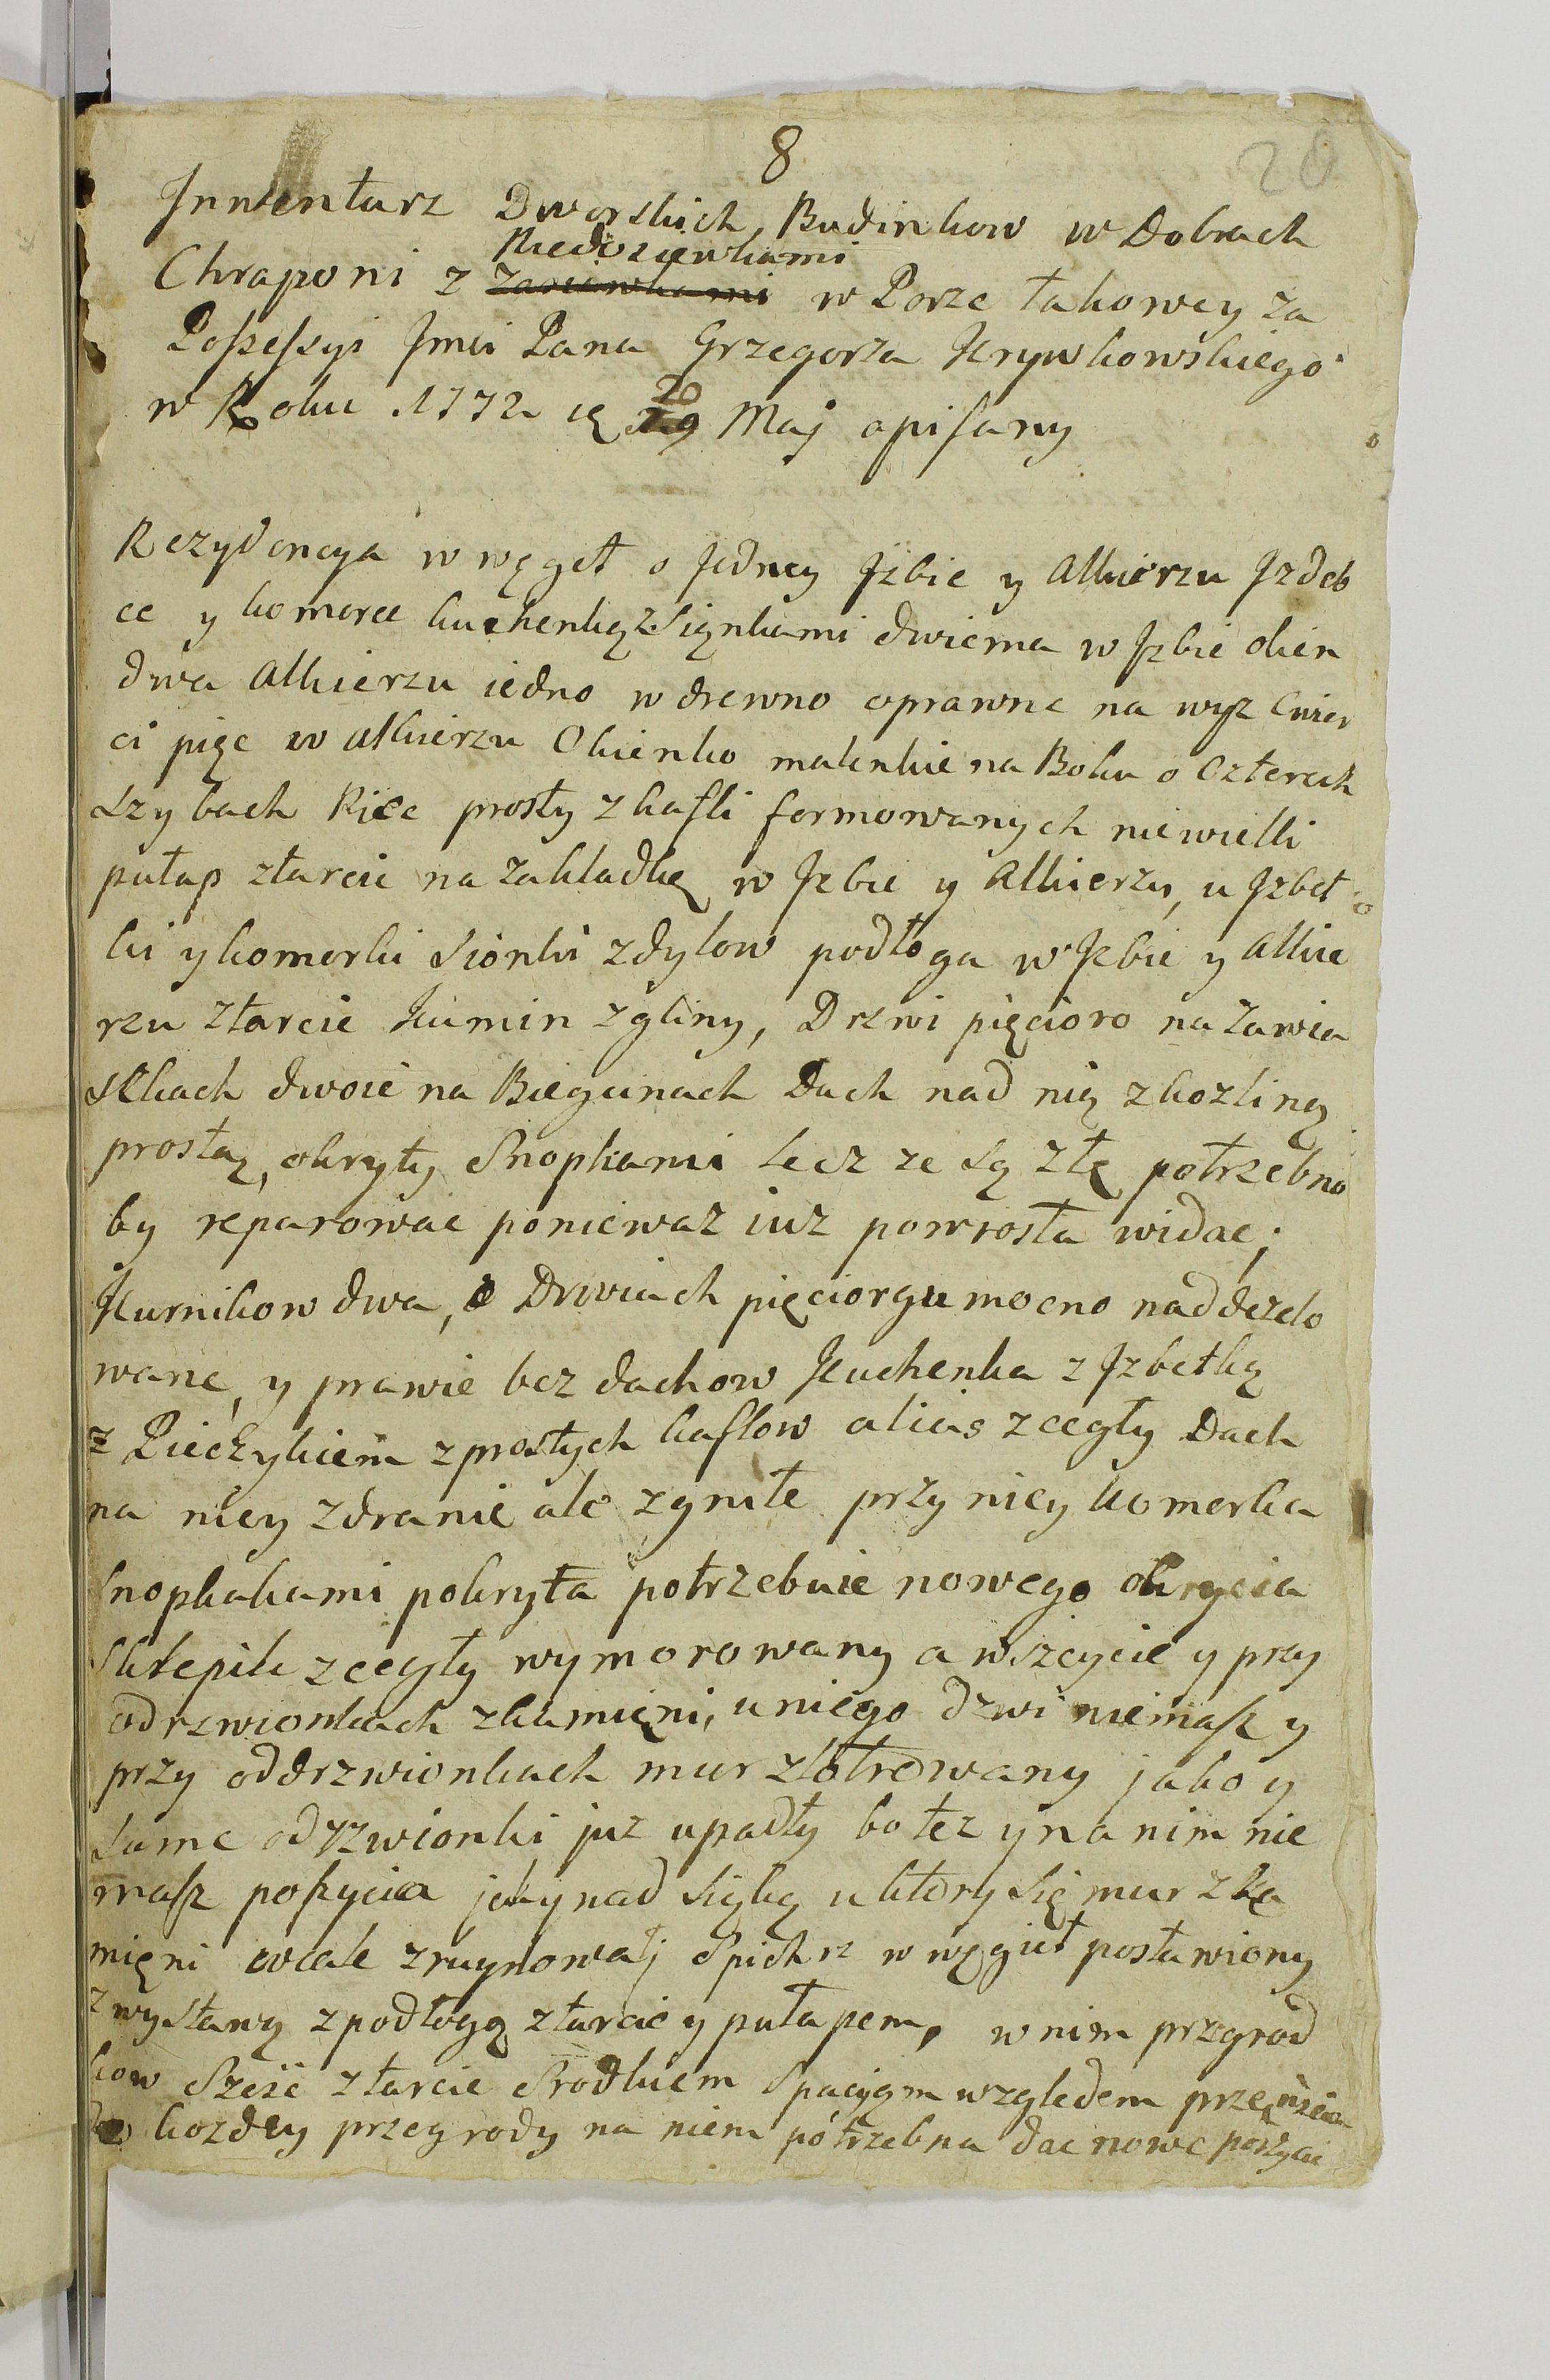 8
20
Jnwentarz Dworskich Budinkow w Dobrach
Niedoziewkami
Chraponi z w Porze takowey za
Possessyi Jmci Pana Grzegorza Krywkowskiego
w Roku 1772 ię 20 Maj opisany
Rezydencya w węgeł o Jedney Jzbie y Alkierzu Jzdeb
ce y komorce kuchenką z Siękami dwiema w Jzbie okien
dwa Alkierzu iedno w drewno oprawne na wyz Cwier
ci pięc w alkierzu Okienko malenkie na Boku o Czterech
szybach Piec prosty z kafli formowanych niewielki
pułap ztarcic na Zakladkę w Jzbie y Alkierzu, u Jzbet
ki y komorki Sionki zdylow podłoga w Jzbie y Alkie
rzu ztarcic Kumin z gliny, Drzwi pięcioro na Zawia
skach dwoie na Biegunach Dach nad nią z kozliną
prostą, okryty Snopkami Lecz ze są złę potrzebno
by reparowac poniewaz iuz powrosła widac;
Kurnikow dwa, o Drwiach pięciorgu mocno nad dezelo
wane, y prawie bez dachow Kuchenka z Jzbetką
z Piecżykiem z prostych kaflow alias z cegły Dach
na niey zdranic ale zgniłe przy niey komorka
Snopkakami pokryta potrzebuie nowego okrycia
Sklepik z cegły wymorowany a wszcycie y przy
odrzwionkach z kamięni, u niego dzwi niemasz y
przy oddrzwionkach mur zlotrowany jako y
same odrzwionki juz upadły bo tez y na nim nie
masz poszycia jak y nad Siyką u ktory się mur z ka
mięni wcale zruynowaŧ Spichrz w węgieł postawiony
z wystawą z podłogą ztarcic y pułapem, w nim przegrod
kow Szesć ztarcic Srodkiem Spacyom względem przęyscia
do kozdey przegrody na niem potrzebna dac nowe poszycie